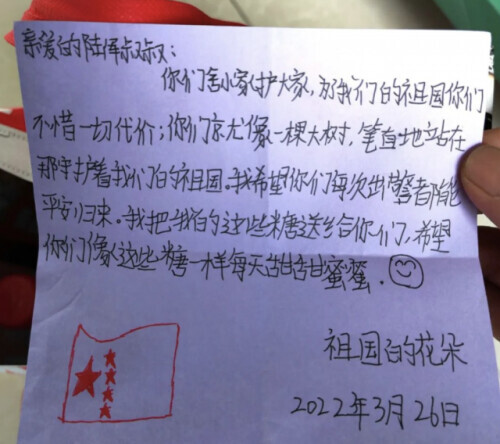 亲爱的陆叔叔:
你们舍小家护大家,为我们的祖国你们
不惜一切代价;你们就像一棵大树,笔直地站在
那守护着我们的祖国。我希望你们每次出警都能
平安归来。我把我的这些糖送给你们,希望
你们像这些糖一样每天甜甜蜜蜜.
祖国的花朵
2022年3月26日